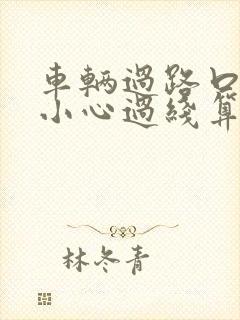 車輛過路口
小心過綫算
林冬青